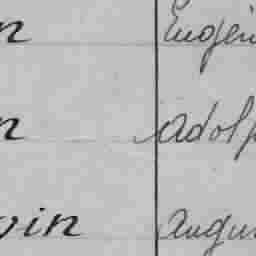 n Eugén
n Adolp
vin Augu